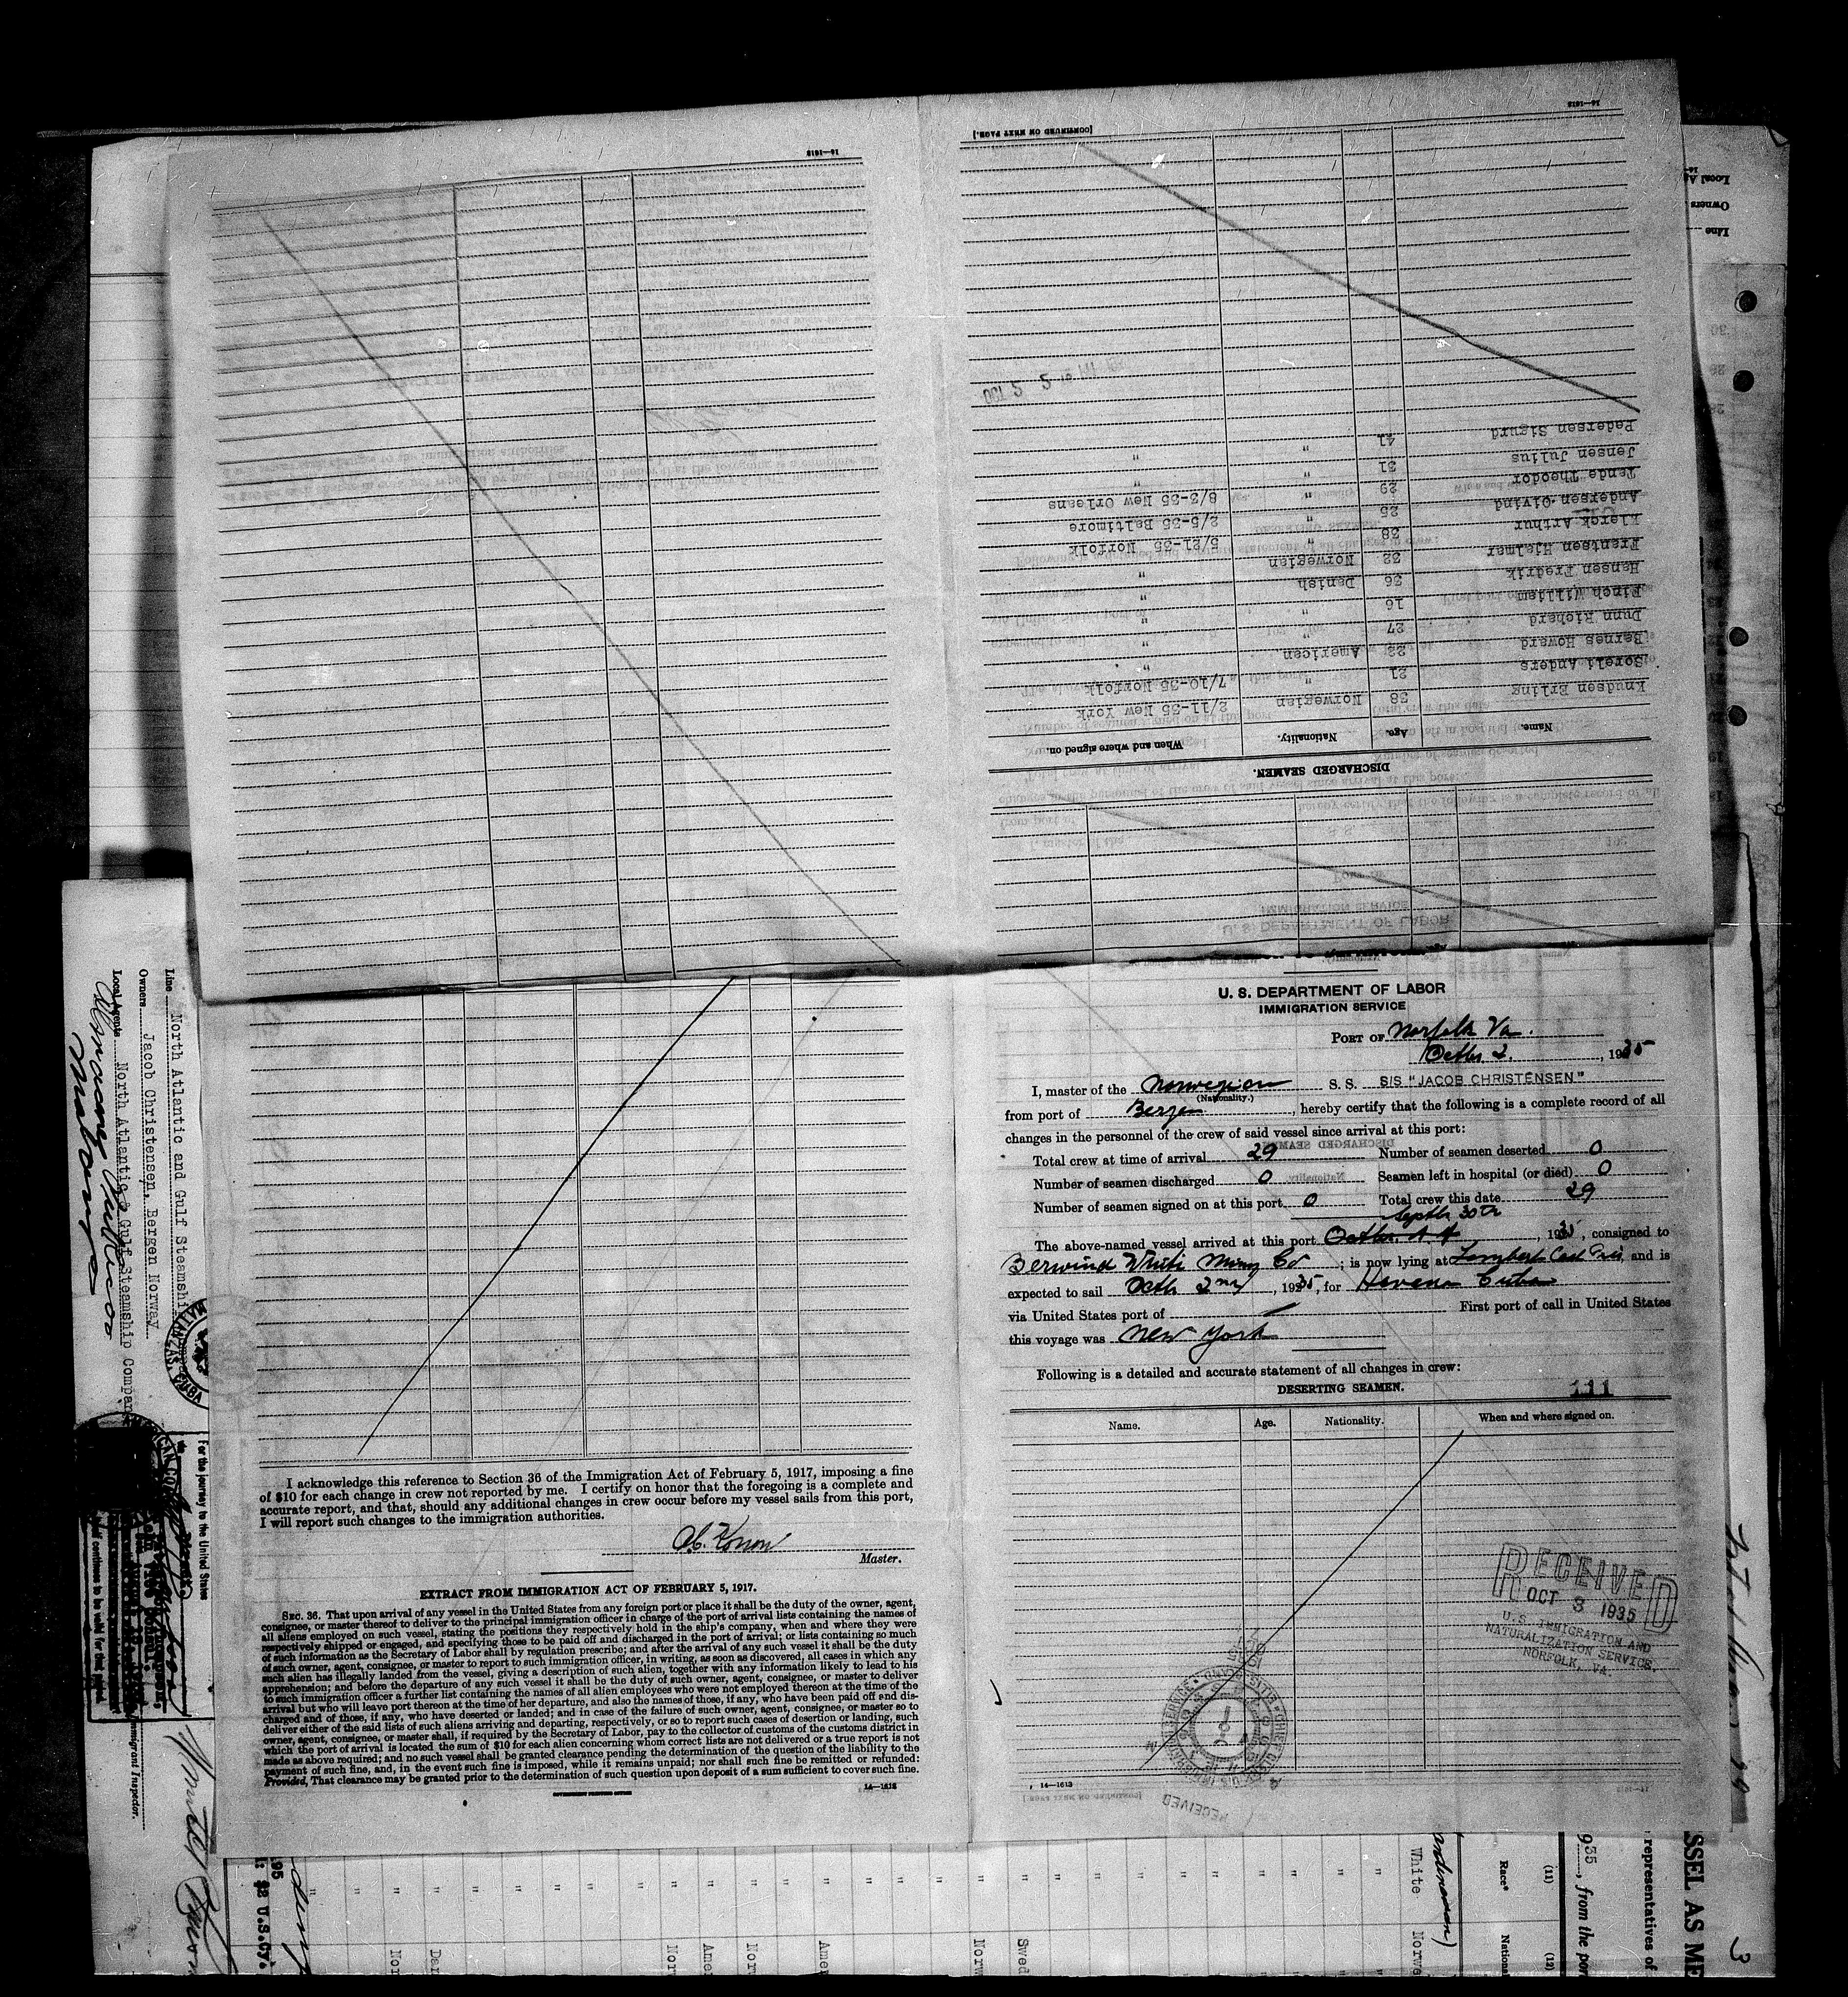 U. S. DEPARTMENT OF LABOR
IMMIGRATION SERVICE
PORT OF Norfolk Va.
Octbr 2., 1935
I, master of the Norwegian S. S. S/S "JACOB CHRISTENSEN"
(Nationality.)
from port of Bergen, hereby certify that the following is a complete record of all
changes in the personnel of the crew of said vessel since arrival at this port:
Total crew at time of arrival 29 Number of seamen deserted 0
Number of seamen discharged 0 Seamen left in hospital (or died) 0
Number of seamen signed on at this port 0 Total crew this date 29
Septbr 30th
The above-named vessel arrived at this port, 1935, consigned to
Berwind White Co; is now lying at Lambert, and is
expected to sail Octb 2nd, 1935, for Havana Cuba
via United States port of First port of call in United States
this voyage was New York
Following is a detailed and accurate statement of all changes in crew:
DESERTING SEAMEN.
111
Name. Age. Nationality. When and where signed on.
RECEIVED
OCT 3 1935
U.S. IMMIGRATION AND
NATURALIZATION SERVICE.
NORFOLK, VA.
RECEIVED
14—1613
I acknowledge this reference to Section 36 of the Immigration Act of February 5, 1917, imposing a fine
of $10 for each change in crew not reported by me. I certify on honor that the foregoing is a complete and
accurate report, and that, should any additional changes in crew occur before my vessel sails from this port,
I will report such changes to the immigration authorities.
Master.
EXTRACT FROM IMMIGRATION ACT OF FEBRUARY 5, 1917.
SEC. 36. That upon arrival of any vessel in the United States from any foreign port or place it shall be the duty of the owner, agent,
consignee, or master thereof to deliver to the principal immigration officer in charge of the port of arrival lists containing the names of
all aliens employed on such vessel, stating the positions they respectively hold in the ship's company, when and where they were
respectively shipped or engaged, and specifying those to be paid off and discharged in the port of arrival; or lists containing so much
of such information as the Secretary of Labor shall by regulation prescribe; and after the arrival of any such vessel it shall be the duty
of such owner, agent, consignee, or master to report to such immigration officer, in writing, as soon as discovered, all cases in which any
such alien has illegally landed from the vessel, giving a description of such alien, together with any information likely to lead to his
apprehension; and before the departure of any such vessel it shall be the duty of such owner, agent, consignee, or master to deliver
to such immigration officer a further list containing the names of all alien employees who were not employed thereon at the time of the
arrival but who will leave port thereon at the time of her departure, and also the names of those, if any, who have been paid off and dis-
charged and of those, if any, who have deserted or landed; and in case of the failure of such owner, agent, consignee, or master so to
deliver either of the said lists of such aliens arriving and departing, respectively, or so to report such cases of desertion or landing, such
owner, agent, consignee, or master shall, if required by the Secretary of Labor, pay to the collector of customs of the customs district in
which the port of arrival is located the sum of $10 for each alien concerning whom correct lists are not delivered or a true report is not
made as above required; and no such vessel shall be granted clearance pending the determination of the question of the liability to the
payment of such fine, and, in the event such fine is imposed, while it remains unpaid; nor shall such fine be remitted or refunded:
Provided, That clearance may be granted prior to the determination of such question upon deposit of a sum sufficient to cover such fine.
GOVERNMENT PRINTING OFFICE
14—1613
DISCHARGED SEAMEN.
Name. Age. Nationality. When and where signed on.
Knudsen Erling 38 Norwegian 2/11-35 New York
Soreli Anders 21 " 7/10-35 Norfolk
Barnes Howard 22 American "
Dunn Richard 27 " "
Finch William 16 " "
Hansen Fredrik 36 Danish "
Frantsen Hjalmar 32 Norwegian "
Klerck Arthur 38 " 5/21-35 Norfolk
Andersen Oivind 25 " 2/5-35 Baltimore
Tande Theodor 29 " 8/3-35 New Orleans
Jensen Julius 31 " "
Pedersen Sigurd 41 " "
[CONTINUED ON NEXT PAGE.]
14—1613
14—1613
Line North Atlantic and Gulf Steamship
Owners Jacob Christensen, Bergen Norway
Local Agents North Atlantic & Gulf Steamship Company
For the journey to the United States
Immigrant Inspector.
Line
Owners
Local Ag
SSEL AS ME
representatives of
935, from the por
(11) (12)
Race* National
White Norwe
Swed
Norw
Amer
Nor
Amer
Norw
Dan
Nor
$2 U.S.Cy.
3